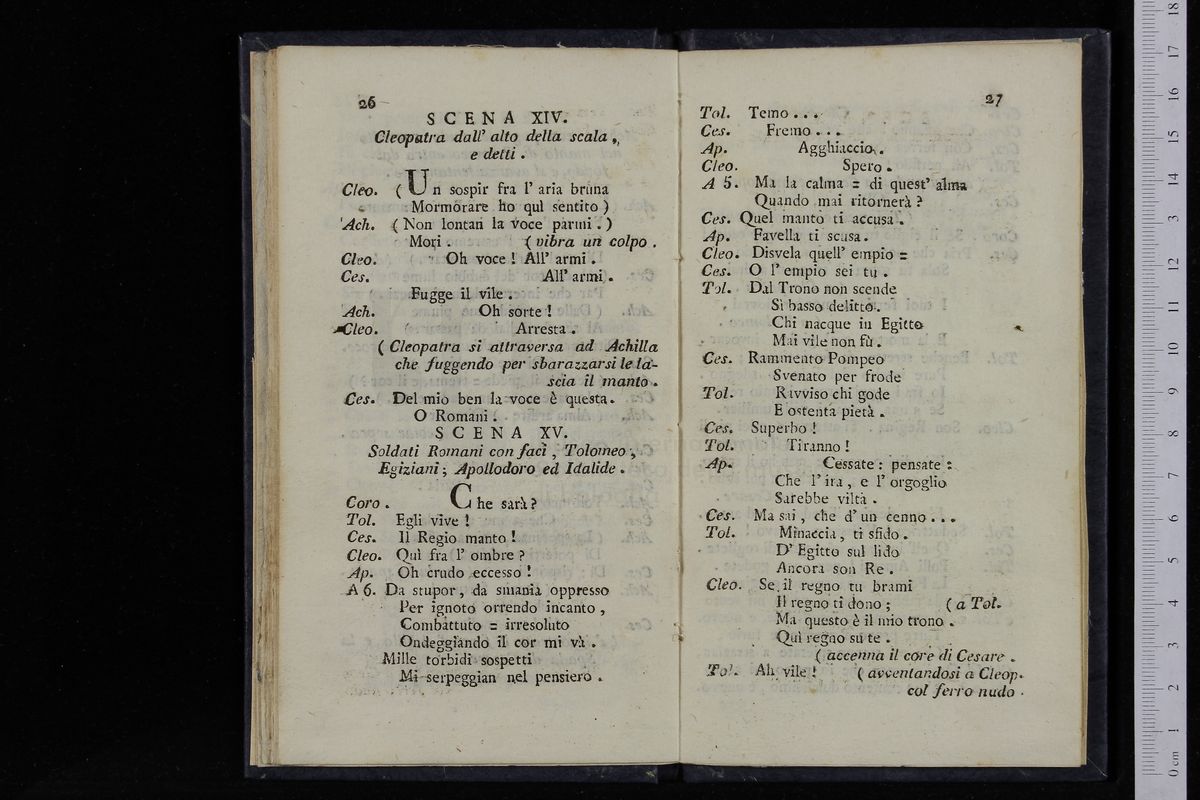 26
SCENA XIV.
Cleopatra dall' alto della scala,
e detti.
Cleo. ( Un sospir fra l' aria bruna
Mormorare ho quì sentito )
Ach. ( Non lontan la voce parmi. )
Mori. ( vibra un colpo.
Cleo. Oh voce! All' armi.
Ces. All' armi.
Fugge il vile.
Ach. Oh sorte!
Cleo. Arresta.
( Cleopatra si attraversa ad Achilla
che fuggendo per sbarazzarsi le la-
scia il manto.
Ces. Del mio ben la voce è questa.
O Romani.
SCENA XV.
Soldati Romani con faci, Tolomeo,
Egiziani; Apollodoro ed Idalide.
Coro. Che sarà?
Tol. Egli vive!
Ces. Il Regio manto!
Cleo. Quì fra l' ombre?
Ap. Oh crudo eccesso!
A 6. Da stupor, da smania oppresso
Per ignoto orrendo incanto,
Combattuto = irresoluto
Ondeggiando il cor mi và.
Mille torbidi sospetti
Mi serpeggian nel pensiero.
27
Tol. Temo...
Ces. Fremo...
Ap. Agghiaccio.
Cleo. Spero.
A 5. Ma la calma = di quest' alma
Quando mai ritornerà?
Ces. Quel manto ti accusa.
Ap. Favella ti scusa.
Cleo. Disvela quell' empio =
Ces. O l' empio sei tu.
Tol. Dal Trono non scende
Sì basso delitto.
Chi nacque in Egitto
Mai vile non fù.
Ces. Rammento Pompeo
Svenato per frode
Tol. Rivviso chi gode
E ostenta pietà.
Ces. Superbo!
Tol. Tiranno!
Ap. Cessate: pensate:
Che l' ira, e l' orgoglio
Sarebbe viltà.
Ces. Ma sai, che d' un cenno...
Tol. Minaccia, ti sfido.
D' Egitto sul lido
Ancora son Re.
Cleo. Se il regno tu brami
Il regno ti dono; ( a Tol.
Ma questo è il mio trono.
Quì regno su te.
( accenna il core di Cesare.
Tol. Ah vile! ( avventandosi a Cleop.
col ferro nudo.
0 cm 1 2 3 4 5 6 7 8 9 10 11 12 13 14 15 16 17 18